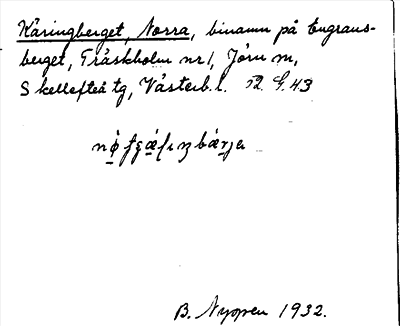 Käringberget, Norra, binamn på Tugraus-
berget, Träskholm nr 1, Jörn sn,
Skellefteå tg, Västerb. l. R. G. 43
B. Nyppen 1932.